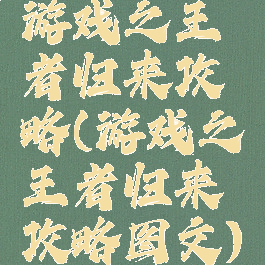 游戏之王
者归来攻
略(游戏之
王者归来
攻略图文)